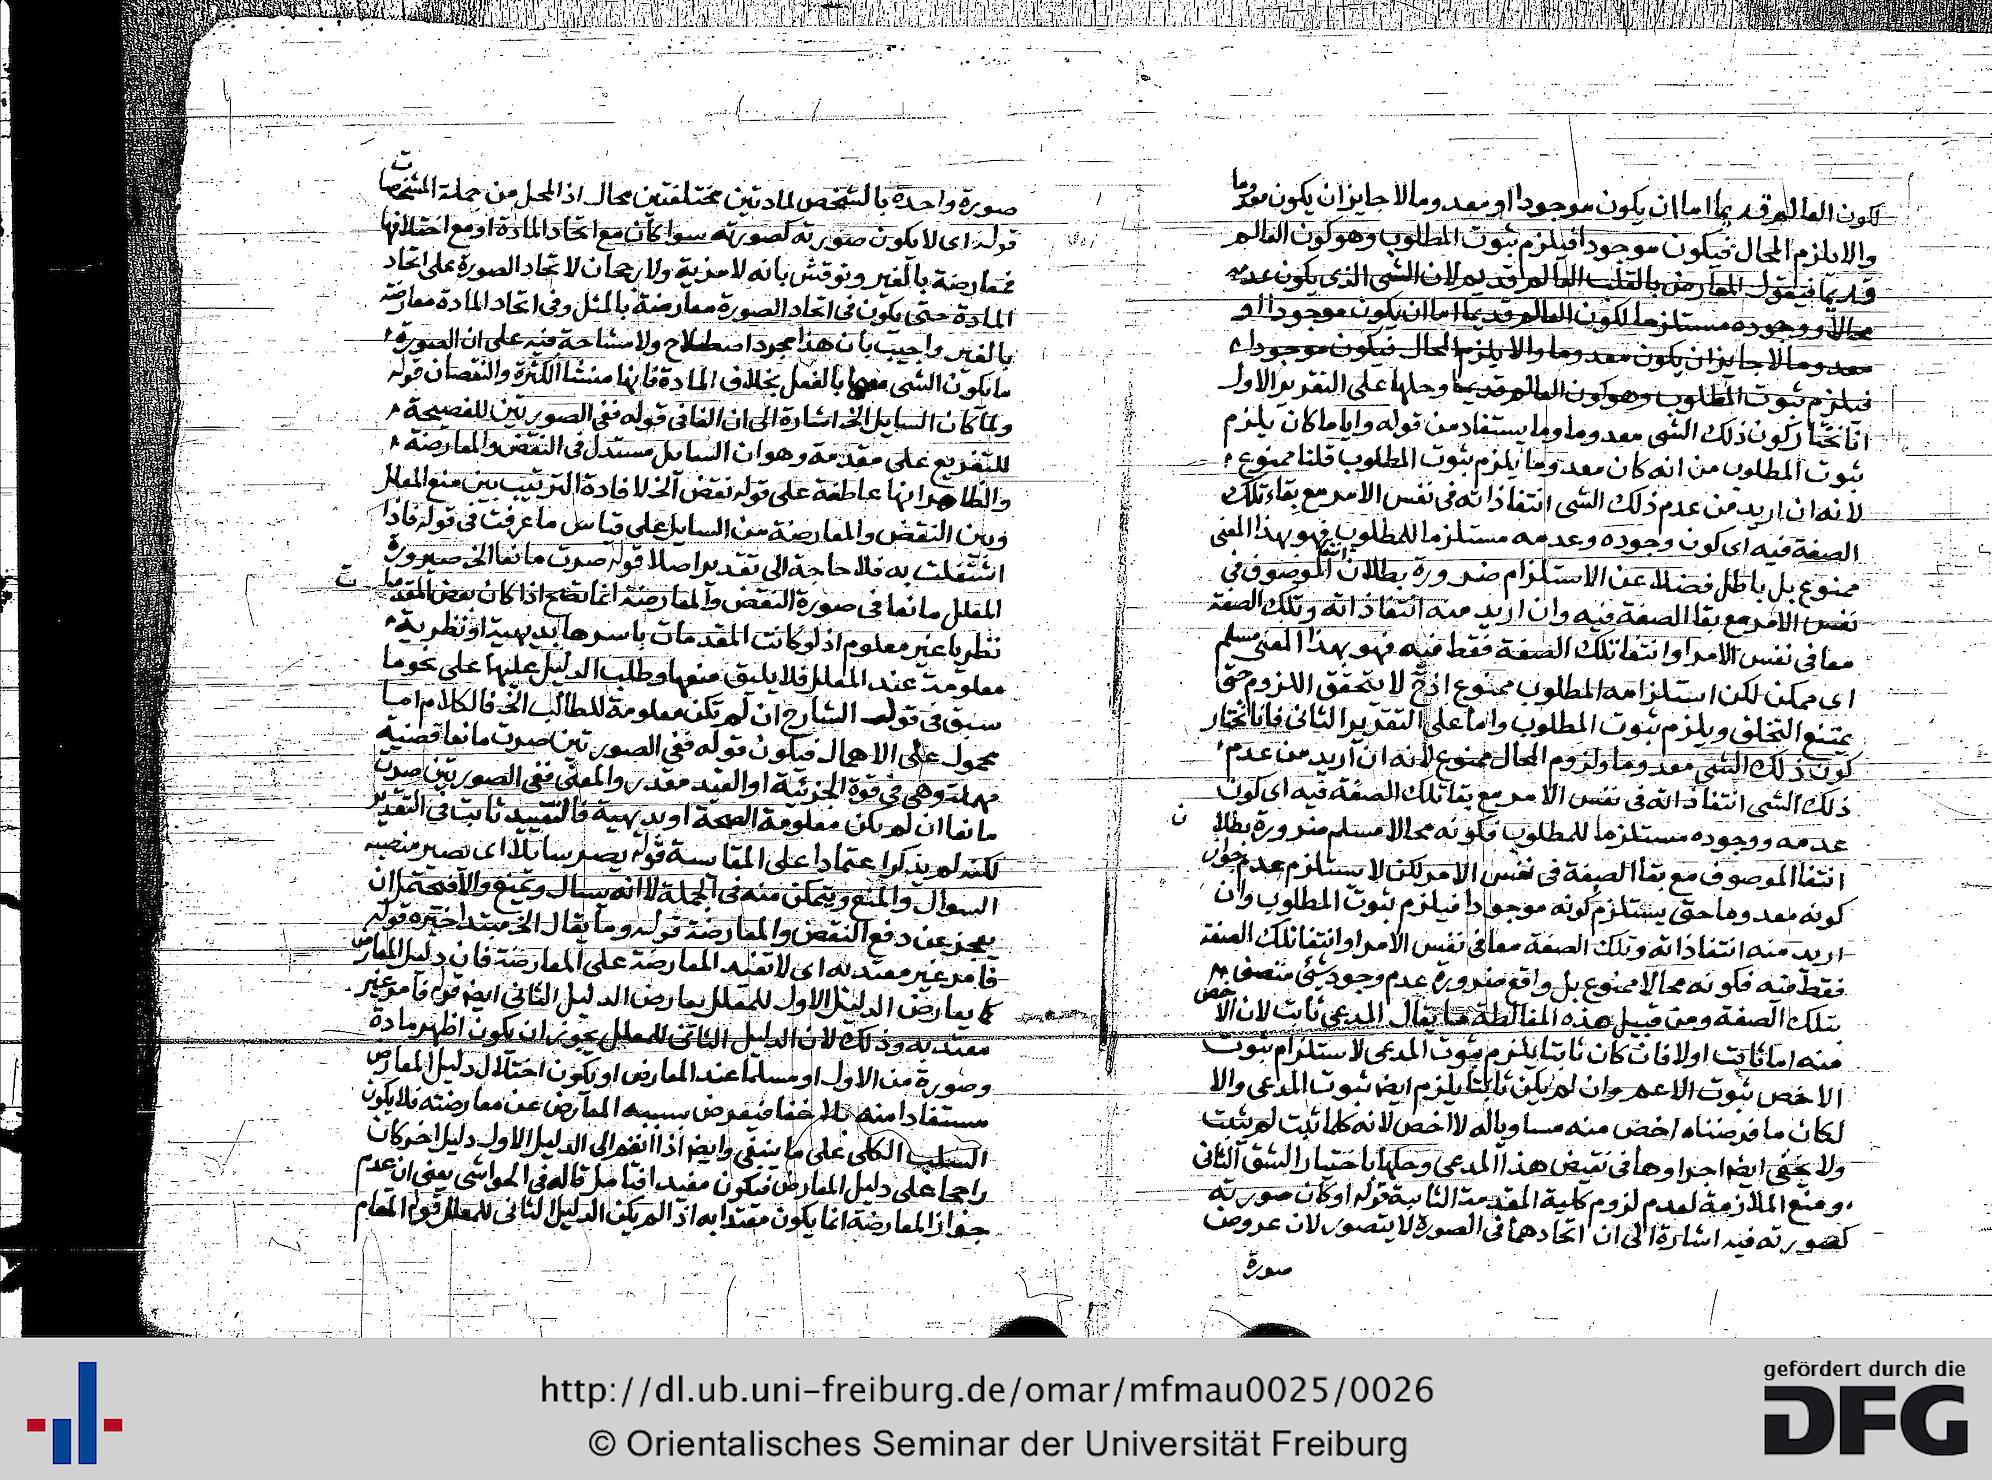 لكون العالم قديما اما ان يكون موجودا او معدوما لا جايز ان يكون معدوما
والا يلزم المحال فيكون موجودا فيلزم ثبوت المطلوب وهو كون العالم
قديما فيقول المعارض بالقلب العالم قديم لان الشى الذى يكون عدمه
محالا ووجوده مستلزما لكون العالم قديما اما ان يكون موجودا او
معدوما لا جايز ان يكون معدوما والا يلزم المحال فيكون موجودا
فيلزم ثبوت المطلوب وهو كون العالم قديما وحلها على التقرير الاول
انا نختار كون ذلك الشى معدوما وما يستفاد من قوله وايا ما كان يلزم
ثبوت المطلوب من انه كان معدوما يلزم ثبوت المطلوب قلنا ممنوع
لانه ان اريد من عدم ذلك الشى انتفا ذاته فى نفس الامر مع بقاء تلك
الصفة فيه اى كون وجوده وعدمه مستلزما للمطلوب فهو بهذا المعنى
ممنوع بل باطل فضلا عن الاستلزام ضرورة بطلان انتفا الموصوف فى
نفس الامر مع بقا الصفة فيه وان اريد منه انتفا ذاته وتلك الصفة
معا فى نفس الامر او انتفا تلك الصفة فقط فيه فهو بهذا المعنى مسلم
اى ممكن لكن استلزامه المطلوب ممنوع اذ ح لا يتحقق اللزوم حتى
يمتنع التخلف ويلزم ثبوت المطلوب واما على التقرير الثانى فانا نختار
كون ذلك الشى معدوما ولزوم المحال ممنوع لانه ان اريد من عدم
ذلك الشى انتفا ذاته فى نفس الامر مع بقا تلك الصفة فيه اى كون
عدمه ووجوده مستلزما للمطلوب فكونه محالا مسلم ضرورة بطلان
انتفا الموصوف مع بقا الصفة فى نفس الامر لكن لا يستلزم عدم جواز
كونه معدوما حتى يستلزم كونه موجودا فيلزم ثبوت المطلوب وان
اريد منه انتفا ذاته وتلك الصفة معا فى نفس الامر او انتفا تلك الصفة
فقط فيه فكونه محالا ممنوع بل واقع ضرورة عدم وجود شى متصف
بتلك الصفة ومن قبيل هذه المغالطة ما يقال المدعى ثابت لان الاخص
منه اما ثابت اولا فان كان ثابتا يلزم ثبوت المدعى لاستلزام ثبوت
الاخص ثبوت الاعم وان لم يكن ثابتا يلزم ايض ثبوت المدعى والا
لكان ما فرضناه اخص منه مساويا له لا اخص لانه كلما ثبت لم يثبت
ولا يخفى ايض اجراوها فى نقيض هذا المدعى وحلها باختيار الشق الثانى
ومنع الملازمة لعدم لزوم كلية المقدمة الثانية قوله او كان صورته
كصورته فيه اشارة الى ان اتحادهما فى الصورة لا يتصور لان عروض
صورة
صورة واحدة بالشخص لمادتين مختلفتين محال اذ المحل من جملة المشخصات
قوله اى لا يكون صورته كصورته سوا كان مع اتحاد المادة او مع اختلافها
فمعارضة بالغير ونوقش بانه لا مزية ولا رجحان لاتحاد الصورة على اتحاد
المادة حتى يكون فى اتحاد الصورة معارضة بالمثل وفى اتحاد المادة معارضة
بالغير واجيب بان هذا مجرد اصطلاح ولا مشاحة فيه على ان الصورة
ما يكون الشى معها بالفعل بخلاف المادة فانها منشا الكثرة والنقصان قوله
ولما كان السايل الخ اشارة الى ان الفا فى قوله ففى الصورتين للفصيحة
للتفريع على مقدمة وهو ان السايل مستدل فى النقض والمعارضة
والظاهر انها عاطفة على قوله نقض الخ لافادة الترتيب بين منع المعلل
وبين النقض والمعارضة من السايل على قياس ما عرفت فى قوله فاذا
اشتغلت به فلا حاجة الى تقدير اصلا قوله صرت مانعا الخ صيرورة
المعلل مانعا فى صورة النقض والمعارضة انما تصح اذا كان بعض المقدمات
نظريا غير معلوم اذ لو كانت المقدمات باسرها بديهية او نظرية
معلومة عند المعلل فلا يليق منعها وطلب الدليل عليها على نحو ما
سبق فى قول الشارح ان لم تكن معلومة للطالب الخ فالكلام اما
محمول على الاهمال فيكون قوله ففى الصورتين صرت مانعا قضية
مهملة وهى فى قوة الجزئية او القيد مقدر والمعنى ففى الصورتين صرت
مانعا ان لم يكن معلومة الصحة او بديهية فالتقييد ثابت فى التقدير
لكنه لم يذكر اعتمادا على المقايسة قوله يصير سايلا اى يصير منصبه
السوال والمنع ويتمكن منه فى الجملة لا انه يسال ويمنع والا فيحتمل ان
يعجز عن دفع النقض والمعارضة قوله وما يقال الخ مبتدا خبره قوله
فامر غير معتد به اى لا تفيد المعارضة على المعارضة فان دليل المعارض
كما يعارض الدليل الاول للمعلل يعارض الدليل الثانى ايض قوله فامر غير
معتد به وذلك لان الدليل الثانى للمعلل يجوز ان يكون اظهر مادة
وصورة من الاول او مسلما عند المعارض او يكون اختلال دليل المعارض
مستفادا منه بلا خفا فيعرض بسببه المعارض عن معارضته فلا يكون
السلب الكلى على ما ينبغى وايض اذا انضم الى الدليل الاول دليل اخر كان
راجحا على دليل المعارض فيكون مفيدا فتامل قاله فى الحواشى يعنى ان عدم
جواز المعارضة انما يكون معتدا به اذا لم يكن الدليل الثانى للمعلل قوله المقام
http://dl.ub.uni-freiburg.de/omar/mfmau0025/0026
© Orientalisches Seminar der Universität Freiburg
gefördert durch die
DFG